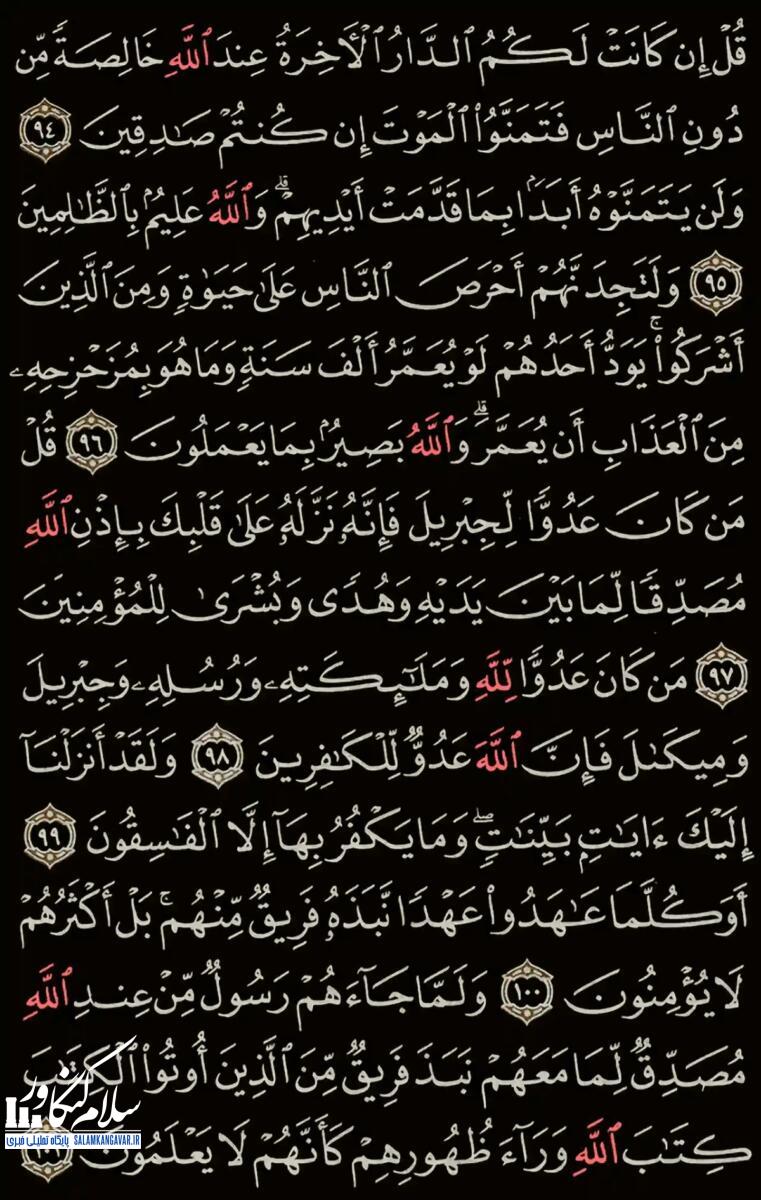 قُلْ إِن كَانَتْ لَكُمُ ٱلدَّارُ ٱلْأَخِرَةُ عِندَ ٱللَّهِ خَالِصَةً مِّن
دُونِ ٱلنَّاسِ فَتَمَنَّوُا۟ ٱلْمَوْتَ إِن كُنتُمْ صَـٰدِقِينَ ٩٤
وَلَن يَتَمَنَّوْهُ أَبَدًۢا بِمَا قَدَّمَتْ أَيْدِيهِمْ ۗ وَٱللَّهُ عَلِيمٌۢ بِٱلظَّـٰلِمِينَ
٩٥ وَلَتَجِدَنَّهُمْ أَحْرَصَ ٱلنَّاسِ عَلَىٰ حَيَوٰةٍ وَمِنَ ٱلَّذِينَ
أَشْرَكُوا۟ ۚ يَوَدُّ أَحَدُهُمْ لَوْ يُعَمَّرُ أَلْفَ سَنَةٍ وَمَا هُوَ بِمُزَحْزِحِهِۦ
مِنَ ٱلْعَذَابِ أَن يُعَمَّرَ ۗ وَٱللَّهُ بَصِيرٌۢ بِمَا يَعْمَلُونَ ٩٦ قُلْ
مَن كَانَ عَدُوًّا لِّجِبْرِيلَ فَإِنَّهُۥ نَزَّلَهُۥ عَلَىٰ قَلْبِكَ بِإِذْنِ ٱللَّهِ
مُصَدِّقًا لِّمَا بَيْنَ يَدَيْهِ وَهُدًى وَبُشْرَىٰ لِلْمُؤْمِنِينَ
٩٧ مَن كَانَ عَدُوًّا لِّلَّهِ وَمَلَـٰٓئِكَتِهِۦ وَرُسُلِهِۦ وَجِبْرِيلَ
وَمِيكَىٰلَ فَإِنَّ ٱللَّهَ عَدُوٌّ لِّلْكَـٰفِرِينَ ٩٨ وَلَقَدْ أَنزَلْنَآ
إِلَيْكَ ءَايَـٰتٍۭ بَيِّنَـٰتٍ ۖ وَمَا يَكْفُرُ بِهَآ إِلَّا ٱلْفَـٰسِقُونَ ٩٩
أَوَكُلَّمَا عَـٰهَدُوا۟ عَهْدًا نَّبَذَهُۥ فَرِيقٌ مِّنْهُم ۚ بَلْ أَكْثَرُهُمْ
لَا يُؤْمِنُونَ ١٠٠ وَلَمَّا جَآءَهُمْ رَسُولٌ مِّنْ عِندِ ٱللَّهِ
مُصَدِّقٌ لِّمَا مَعَهُمْ نَبَذَ فَرِيقٌ مِّنَ ٱلَّذِينَ أُوتُوا۟ ٱلْكِتَـٰبَ
كِتَـٰبَ ٱللَّهِ وَرَآءَ ظُهُورِهِمْ كَأَنَّهُمْ لَا يَعْلَمُونَ ١٠١
سلام کنگاور
پایگاه تحلیلی خبری SALAMKANGAVAR.IR